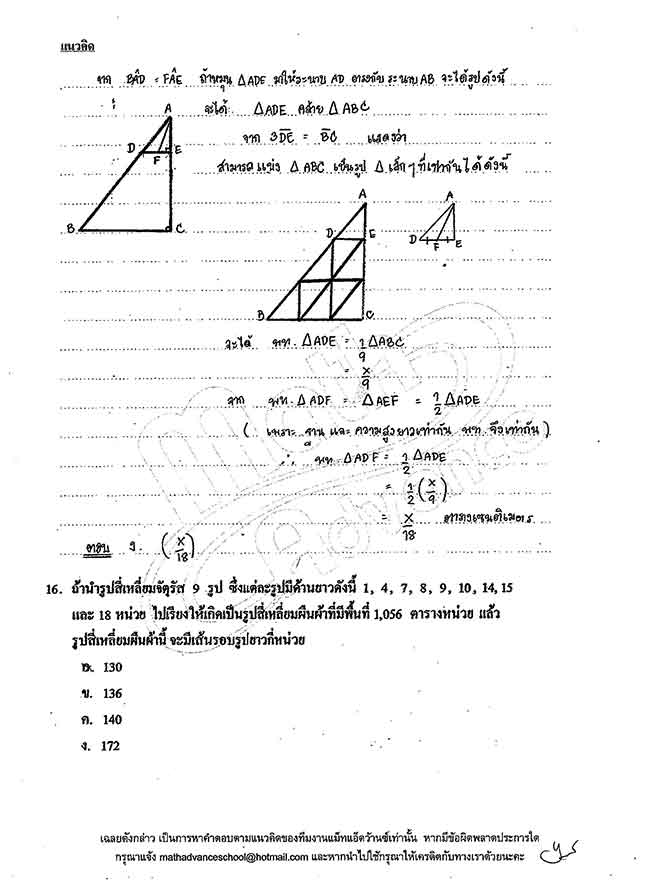 แนวคิด
จาก BÂD = FÂE ถ้าหมุน △ADE มาให้ระนาบ AD ตรงกับ ระนาบ AB จะได้รูปดังนี้
A
จะได้ △ADE คล้าย △ABC
จาก 3DE = BC แสดงว่า
D
F
E
สามารถแบ่ง △ABC เป็นรูป △ เล็กๆ ที่เท่ากันได้ดังนี้
A
A
B
C
D
E
D
F
E
B
C
จะได้ พท. △ADE = 1/9 △ABC
= x/9
จาก พท. △ADF = △AEF = 1/2 △ADE
( เพราะ ฐาน และ ความสูงยาวเท่ากัน พท. จึงเท่ากัน )
∴ พท △ADF = 1/2 △ADE
= 1/2 (x/9)
= x/18 ตารางเซนติเมตร
ตอบ ง. (x/18)
Math Advance
16. ถ้านำรูปสี่เหลี่ยมจัตุรัส 9 รูป ซึ่งแต่ละรูปมีด้านยาวดังนี้ 1, 4, 7, 8, 9, 10, 14, 15
และ 18 หน่วย ไปเรียงให้เกิดเป็นรูปสี่เหลี่ยมผืนผ้าที่มีพื้นที่ 1,056 ตารางหน่วย แล้ว
รูปสี่เหลี่ยมผืนผ้านี้ จะมีเส้นรอบรูปยาวกี่หน่วย
ก. 130
ข. 136
ค. 140
ง. 172
เฉลยดังกล่าว เป็นการหาคำตอบตามแนวคิดของทีมงานแม็ทแอ็ดว้านซ์เท่านั้น หากมีข้อผิดพลาดประการใด
กรุณาแจ้ง mathadvanceschool@hotmail.com และหากนำไปใช้กรุณาให้เครดิตกับทางเราด้วยนะคะ